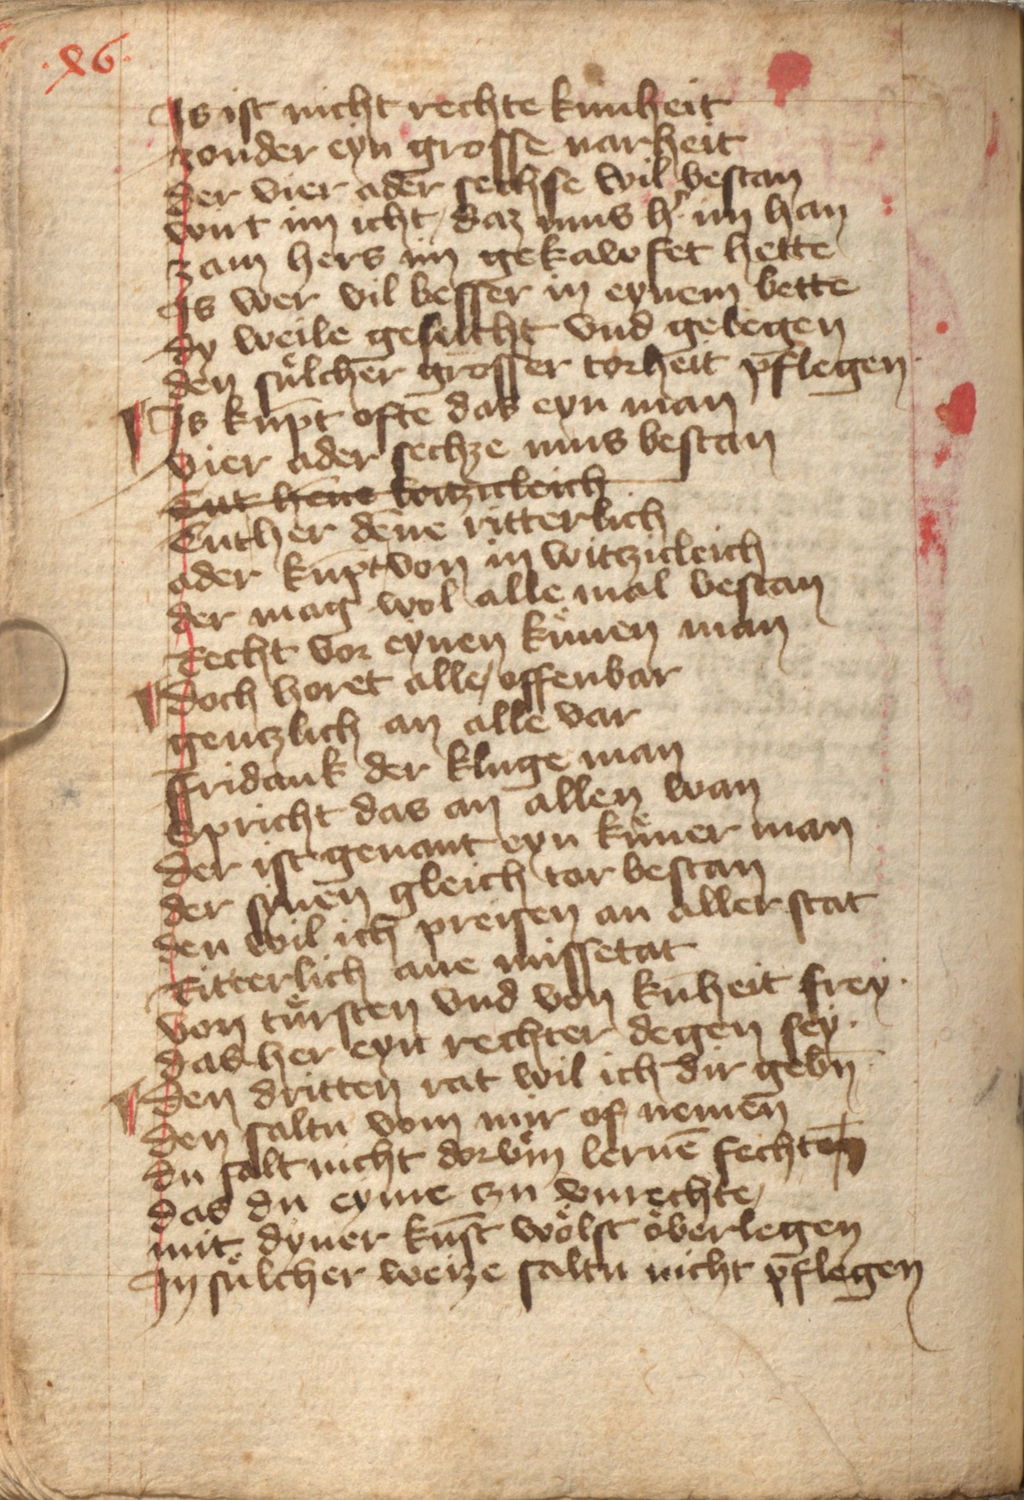 ·86·
Is ist nicht rechte kunheit
zonder eyn grosse narheit
der vier ader sechse wil bestan
wirt im icht / daz mus hˀ im han
zam hers im gekawfet hette
Is wer vil besser in eynem bette
dy weile gesucht vnd gelegen
den sülcher grosser torheit pflegen·
¶ Is kūpt ofte das eyn man
vier ader sechze mus bestan
Tut hēne witzicleich
Tut her dēne ritterlich
ader kūpt von in witczicleich
der mag wol alle mal bestan
Recht vor eynen künen man
¶ Doch horet alle / offenbar
genczlich an alle var
ffridank der kluge man
Spricht das an allen wan
der ist genant eyn küner man
der synen gleich tar bestan
den wil ich preisen an aller stat
Ritterlich ane missetat
von türsten vnd von kūheit frey·
das her eyn rechter degen sey·
¶ Den dritten rat wil ich dir gebn̄
den saltu vom mir of nemen
du salt nicht dorüm lernē fechten
das du eyme zu vnrechte /
mit dyner kūst wölst öberlegen
In sülcher weize saltu nicht pflegen